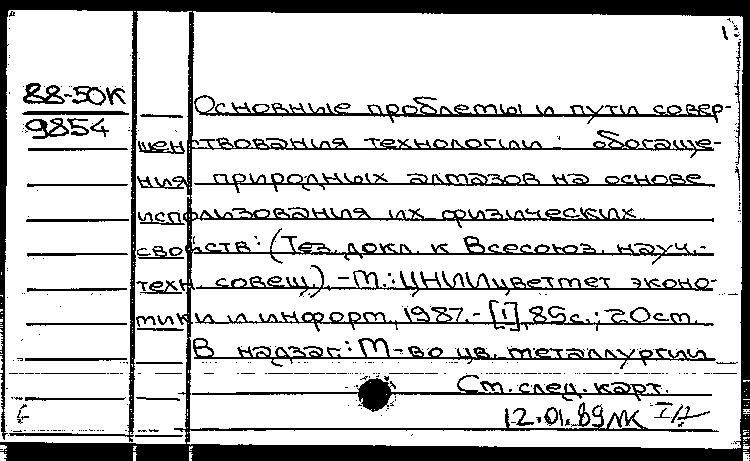 1.
88-50К
9854
Основные проблемы и пути совер-
шенствования технологии обогаще-
ния природных алмазов на основе
использования их физических
свойств: (Тез. докл. к Всесоюз. науч.-
техн. совещ.). - М.: ЦНИИцветмет эконо-
мики и информ, 1987. - [1], 85с.; 20см.
В надзаг.: М-во цв. металлургии
См. след. карт.
12.01.89